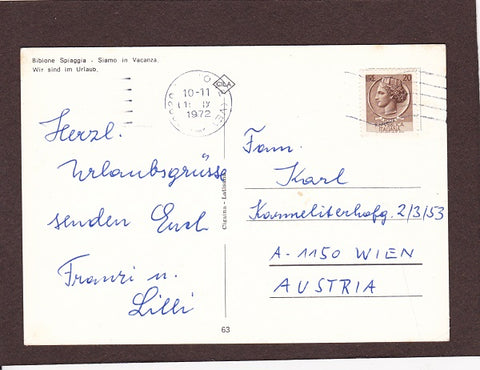 Bibione Spiaggia - Siamo in Vacanza
Wir sind im Urlaub.
10-11
1972
20
ITALIANA
Herzl.
Urlaubsgrüsse
senden Euch
Franzi u.
Lilli
Fam.
Karl
Karmeliterhofg. 2/3/53
A-1150 WIEN
AUSTRIA
63